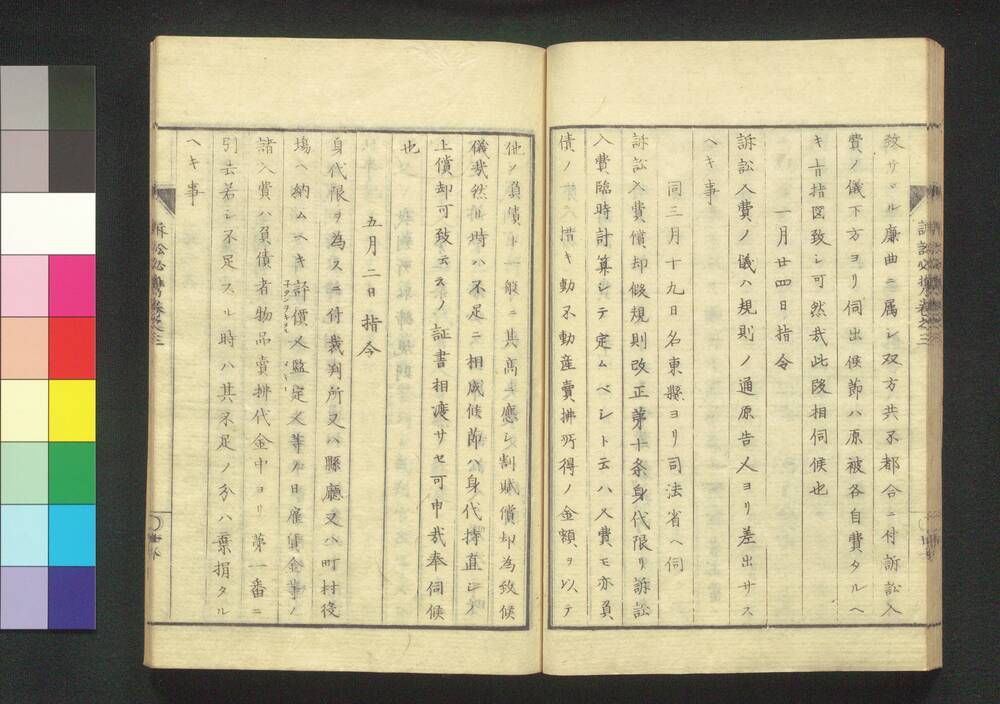 致サヽル廉曲ニ属シ双方共不都合ニ付訴訟入
費ノ儀下方ヨリ伺出候節ハ原被各自費タルヘ
キ旨指図致シ可然哉此段相伺候也
一月廿四日指令
訴訟入費ノ儀ハ規則ノ通原告人ヨリ差出サス
ヘキ事
同三月十九日名東縣ヨリ司法省ヘ伺
訴訟入費償却仮規則改正第十条身代限リ訴訟
入費臨時計算シテ定ムベシト云ハ入費モ亦負
債ノ措キ動不動産賣拂所得ノ金額ヲ以テ
他ノ負債ト一般ニ其高ニ應シ割賦償却為致候
儀哉然ル時ハ不足ニ相成候節ハ身代持直シノ
上償却可致云云ノ証書相渡サセ可申哉奉伺候
也
五月二日指令
身代限ヲ為スニ付裁判所又ハ縣廳又ハ町村役
塲ヘ納ムヘキ評價人監定人等ノ日雇賃金等ノ
諸入費ハ負債者物品賣拂代金中ヨリ第一番ニ
引去若シ不足スル時ハ其不足ノ分ハ棄捐タル
ヘキ事
訴訟必携巻之三